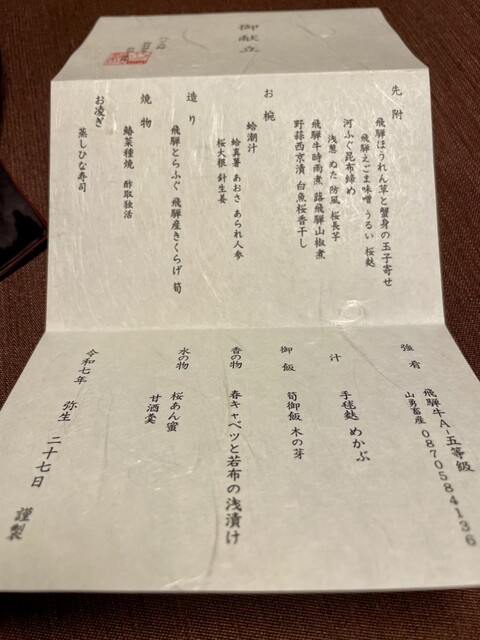 御献立
先附
飛騨ほうれん草と蟹身の玉子寄せ
飛騨えごま味噌 うるい 桜麩
河ふぐ昆布締め
浅葱 ぬた 防風 桜長芋
飛騨牛時雨煮 蕗飛騨山椒煮
野蒜西京漬 白魚桜香干し
お椀
蛤潮汁
蛤真薯 あおさ あられ人参
桜大根 針生姜
造り
飛騨とらふぐ 飛騨産きくらげ 筍
焼物
鰆菜種焼 酢取独活
お凌ぎ
蒸しひな寿司
強肴
飛騨牛A-五等級
山勇畜産 0870584136
汁
手毬麩 めかぶ
御飯
筍御飯 木の芽
香の物
春キャベツと若布の浅漬け
水の物
桜あん蜜
甘酒羹
令和七年 弥生 二十七日 謹製